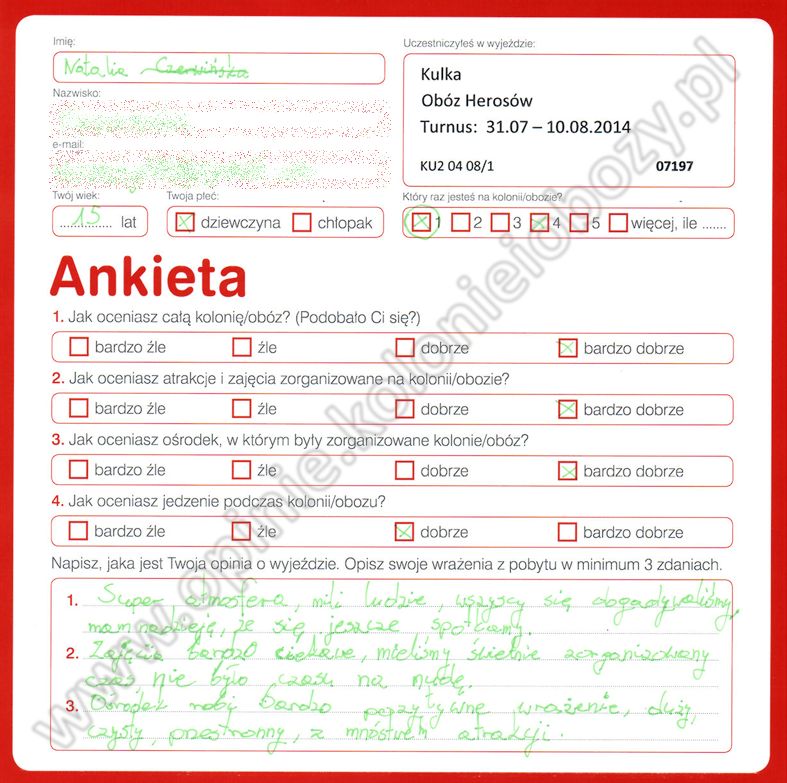 Imię:
Uczestniczyłeś w wyjeździe:
Natalia Czerwińska
Kulka
Obóz Herosów
Turnus: 31.07 – 10.08.2014
KU2 04 08/1 07197
Nazwisko:
e-mail:
Twój wiek: Twoja płeć: Który raz jesteś na kolonii/obozie?
15 lat dziewczyna chłopak 1 2 3 4 5 więcej, ile .......
Ankieta
1. Jak oceniasz całą kolonię/obóz? (Podobało Ci się?)
bardzo źle źle dobrze bardzo dobrze
2. Jak oceniasz atrakcje i zajęcia zorganizowane na kolonii/obozie?
bardzo źle źle dobrze bardzo dobrze
3. Jak oceniasz ośrodek, w którym były zorganizowane kolonie/obóz?
bardzo źle źle dobrze bardzo dobrze
4. Jak oceniasz jedzenie podczas kolonii/obozu?
bardzo źle źle dobrze bardzo dobrze
Napisz, jaka jest Twoja opinia o wyjeździe. Opisz swoje wrażenia z pobytu w minimum 3 zdaniach.
1. Super atmosfera, mili ludzie, wszyscy się dogadywaliśmy,
mam nadzieję, że się jeszcze spotkamy.
2. Zajęcia bardzo ciekawe, mieliśmy świetnie zorganizowany
czas nie było czasu na nudę.
3. Ośrodek robi bardzo wrażenie, duży,
czysty, przestronny, z mnóstwem atrakcji.
www.opinie.kolonieiobozy.pl